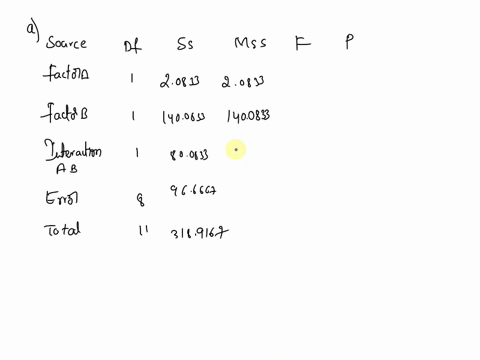 a)
Source Df Ss Mss F P
Factor A 1 2.0833 2.0833
Factor B 1 140.0833 140.0833
Interaction AB 1 80.0833
Error 8 96.6667
Total 11 318.9167